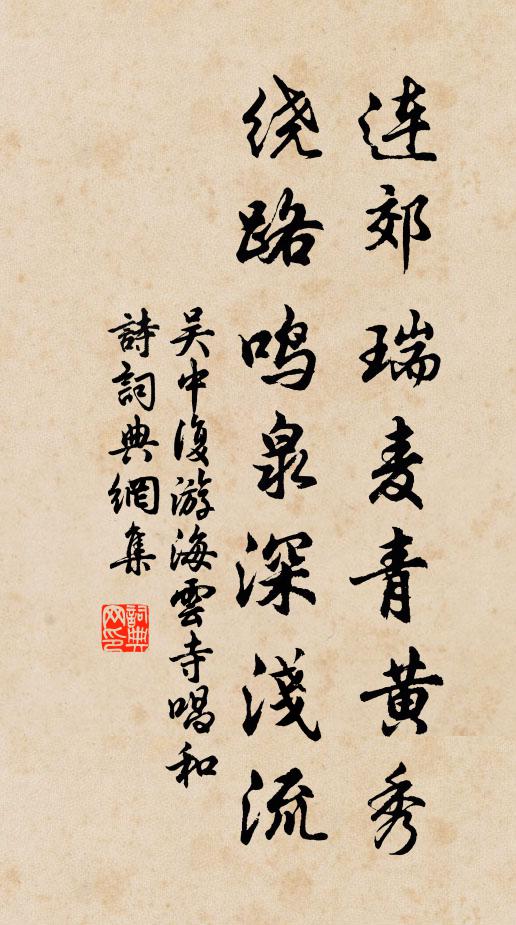 连郊瑞麦青黄秀
绕路鸣泉深浅流
吴中復游海雲寺唱和
詩詞典網集
詞典网印